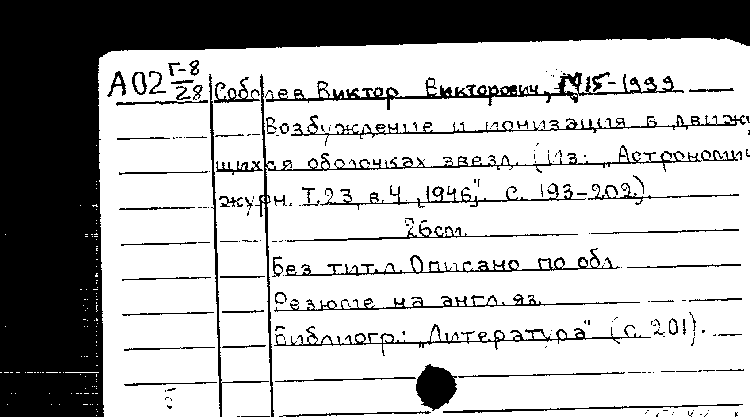 А02 Г-8/28 Соболев Виктор Викторович, 1915-1999
Возбуждение и ионизация в движу
щихся оболочках звезд. (Из: „Астрономич
журн. Т.23, в.4, 1946". с. 193-202.).
26см.
Без тит.л. Описано по обл.
Резюме на англ. яз.
Библиогр.: „Литература" (с. 201).